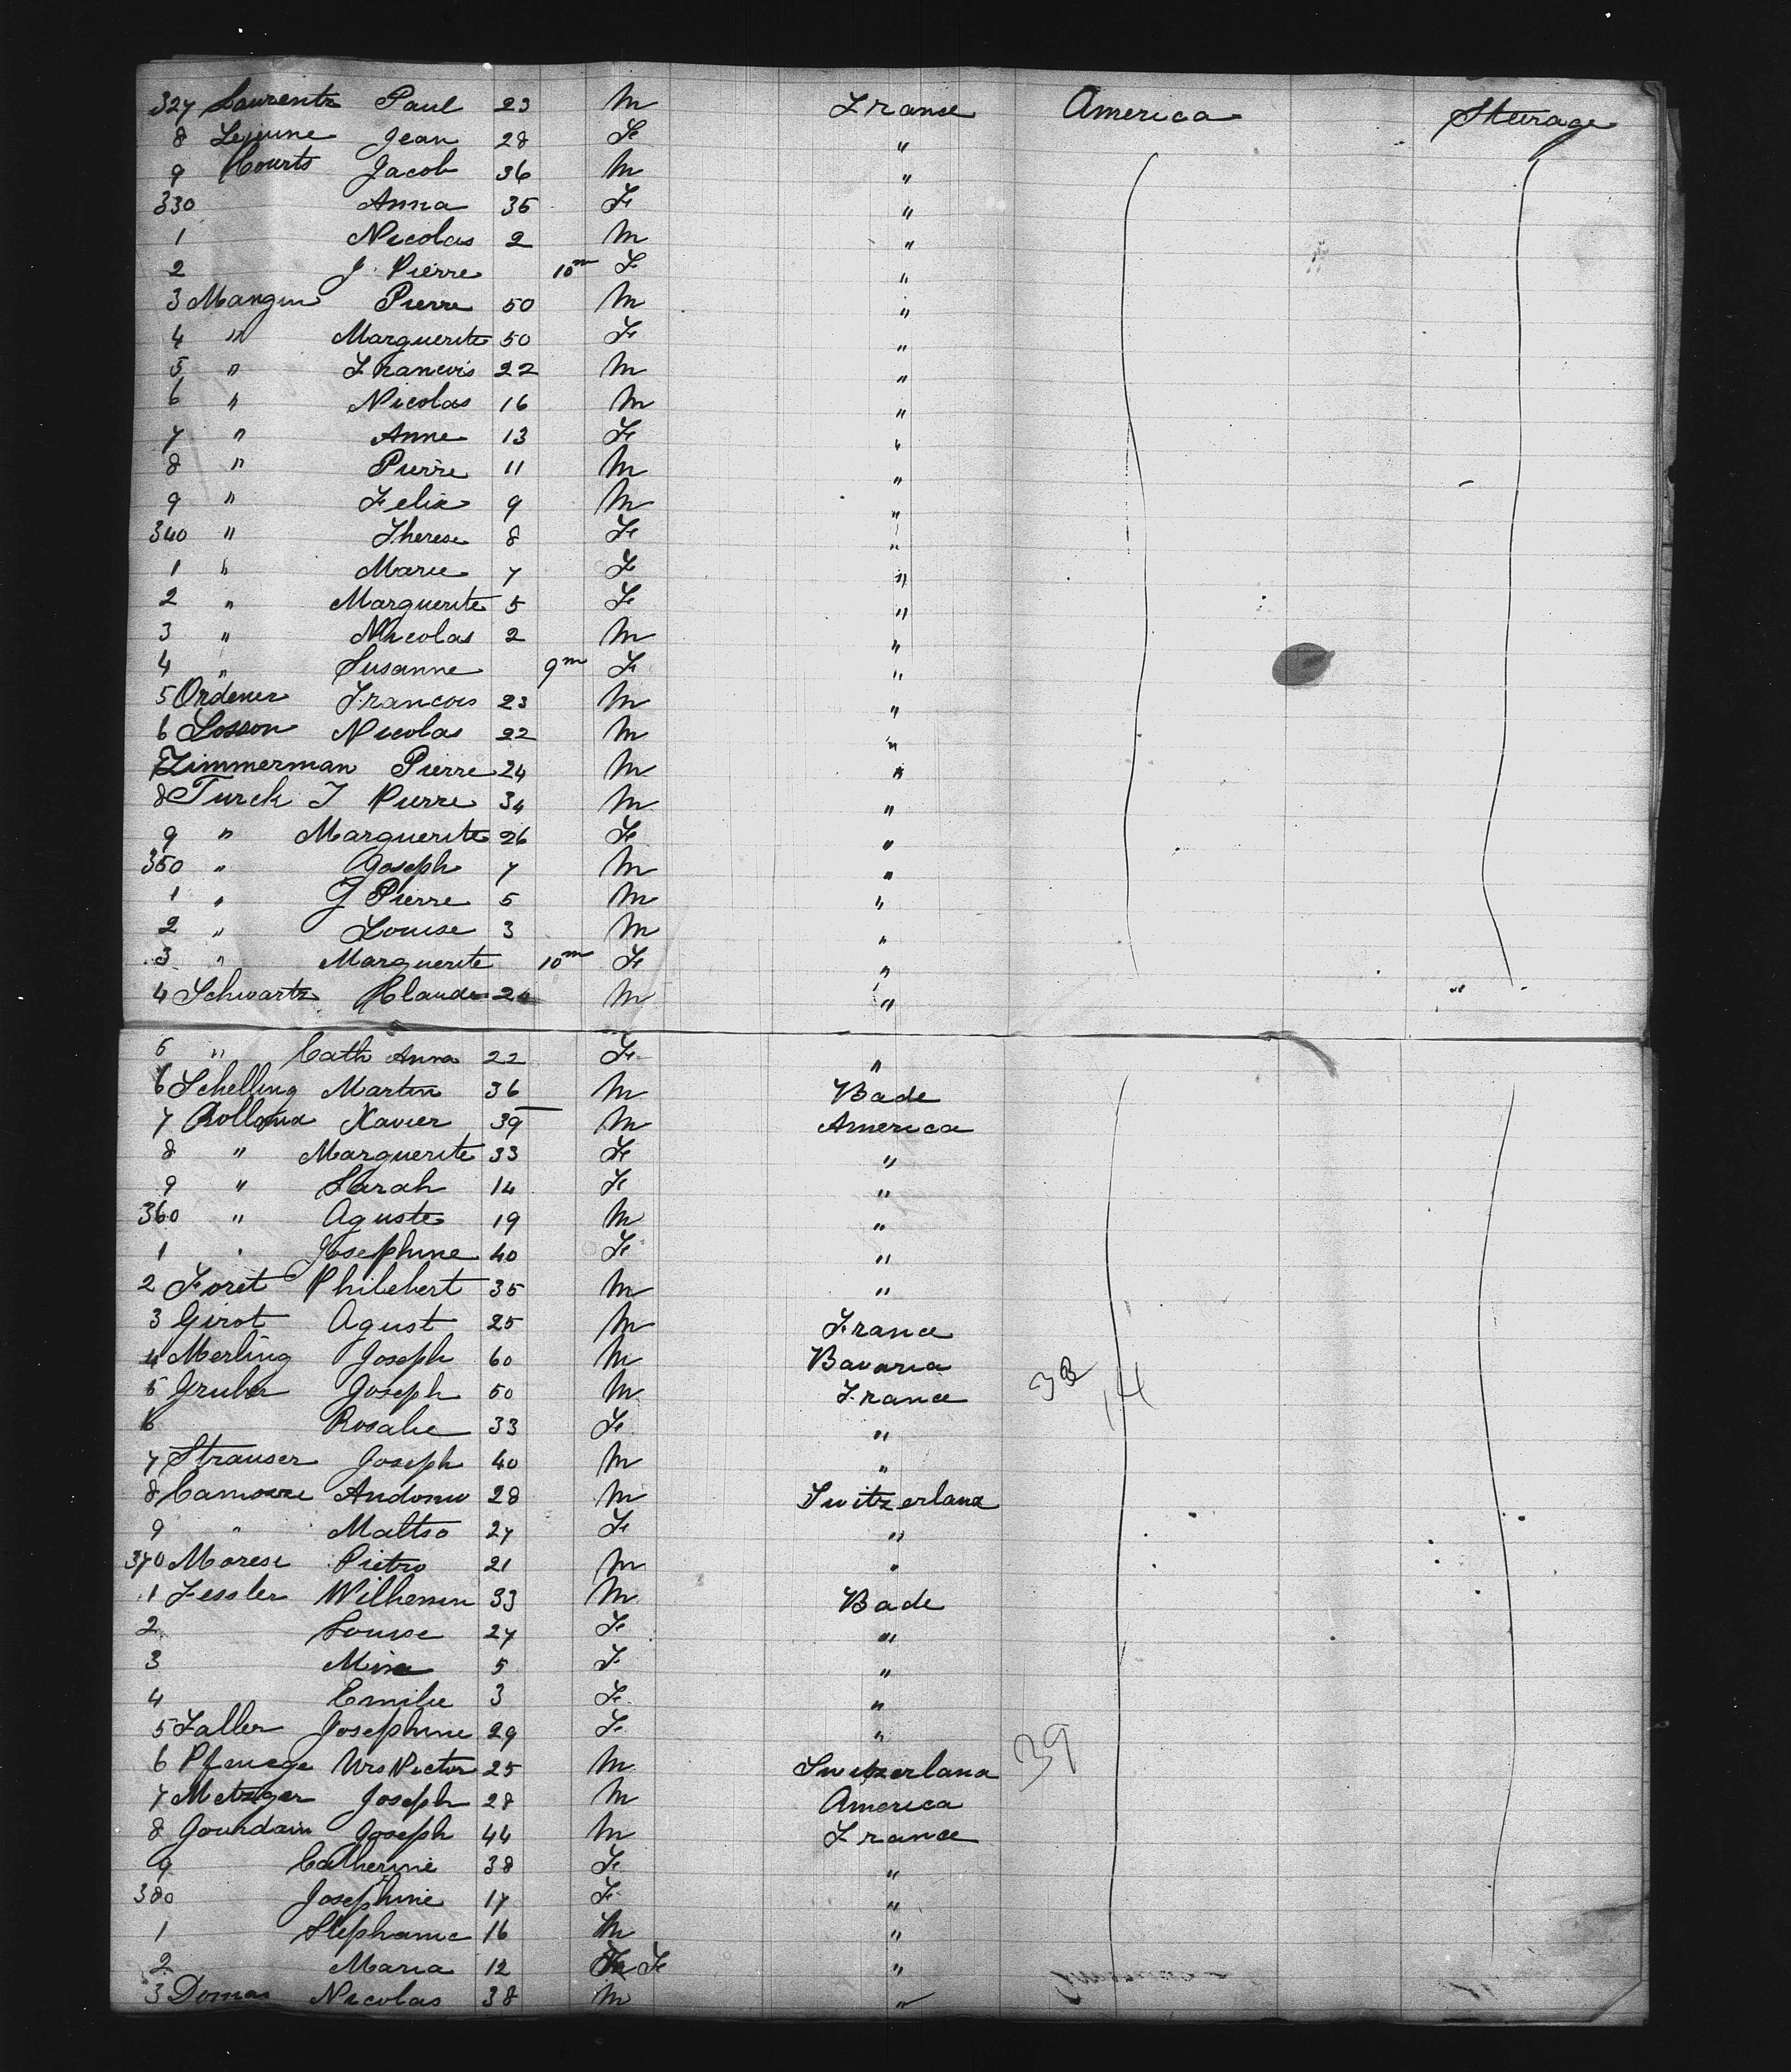 327 Laurentz Paul 23 M France America Sterage
8 Lejeune Jean 28 F "
9 Courts Jacob 36 M "
330 Anna 35 F "
1 Nicolas 2 M "
2 J. Pierre 10m F "
3 Mangin Pierre 50 M "
4 " Marguerite 50 F "
5 " Francois 22 M "
6 " Nicolas 16 M "
7 " Anne 13 F "
8 " Pierre 11 M "
9 " Felix 9 M "
340 " Therese 8 F "
1 " Marie 7 F "
2 " Marguerite 5 F "
3 " Nicolas 2 M "
4 " Susanne 9m F "
5 Ordener Francois 23 M "
6 Losson Nicolas 22 M "
7 Zimmerman Pierre 24 M "
8 Turck J Pierre 34 M "
9 " Marguerite 26 F "
350 " Joseph 7 M "
1 " J Pierre 5 M "
2 " Louise 3 M "
3 " Marguerite 10m F "
4 Schwartz Claude 24 M " "
5 " Cath Anna 22 F "
6 Schelling Martin 36 M Bade
7 Xavier 39 M America
8 " Marguerite 33 F "
9 " Sarah 14 F "
360 " Aguste 19 M "
1 " Josephine 40 F "
2 Foret Philebert 35 M "
3 Girot Agust 25 M France
4 Merling Joseph 60 M Bavaria
5 Gruber Joseph 50 M France 38 14
6 Rosalie 33 F "
7 Strauser Joseph 40 M "
8 28 M Switzerland
9 " Maltso 27 F "
370 Morese Pietro 21 M "
1 Fessler Wilhemm 33 M Bade
2 Louise 27 F "
3 Mina 5 F "
4 Emilie 3 F "
5 Faller Josephine 29 F "
6 Urs Victor 25 M Switzerland 39
7 Metzger Joseph 28 M America
8 Gourdain Joseph 44 M France
9 Catherine 38 F "
380 Josephine 17 F "
1 Stephanie 16 M "
2 Maria 12 F "
3 Domas Nicolas 38 M "